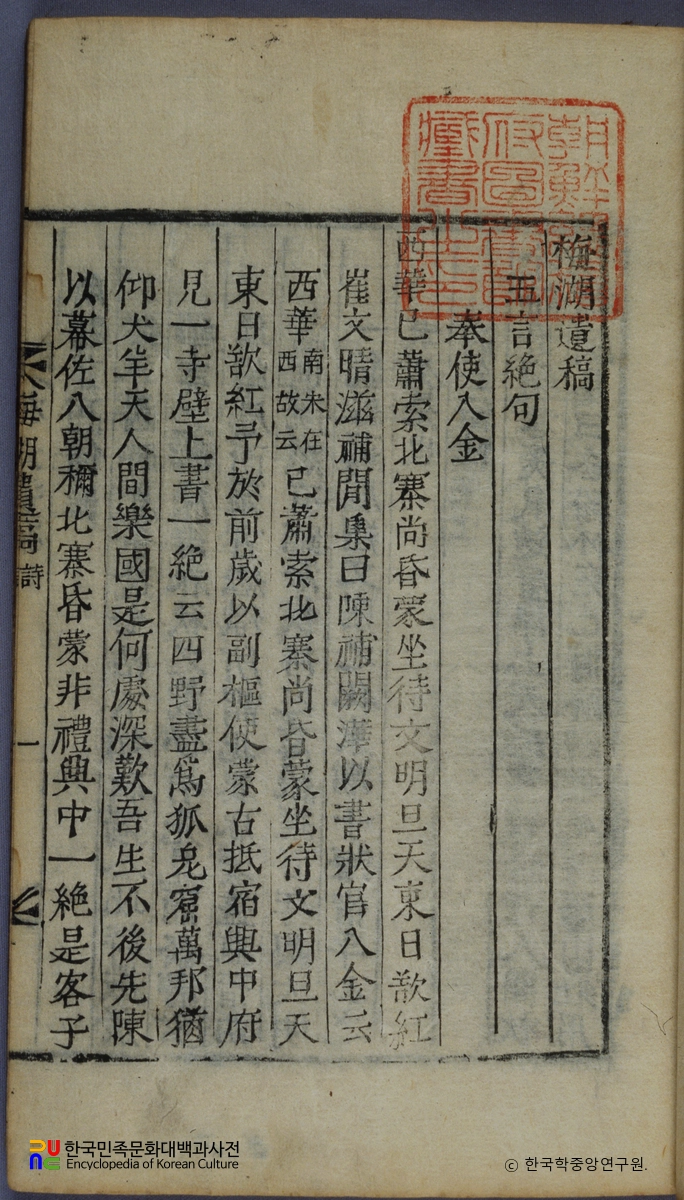 梅湖遺稿
五言絶句
奉使入金
西華已蕭索北寨尚昏蒙坐待文明旦天東日欲紅
崔文晴滋補閒集曰陳補闕澕以書狀官入金云
西華南未在西故云已蕭索北寨尚昏蒙坐待文明旦天
東日欲紅予於前歲以副樞使蒙古抵宿興中府
見一寺壁上書一絶云四野盡爲狐兎窟萬邦猶
仰犬羊天人間樂國是何處深歎吾生不後先陳
以幕佐入朝稱北寨昏蒙非禮興中一絶是客子
梅湖遺稿 詩 一
朝鮮總督府圖書館藏書之印
한국민족문화대백과사전
Encyclopedia of Korean Culture
© 한국학중앙연구원.